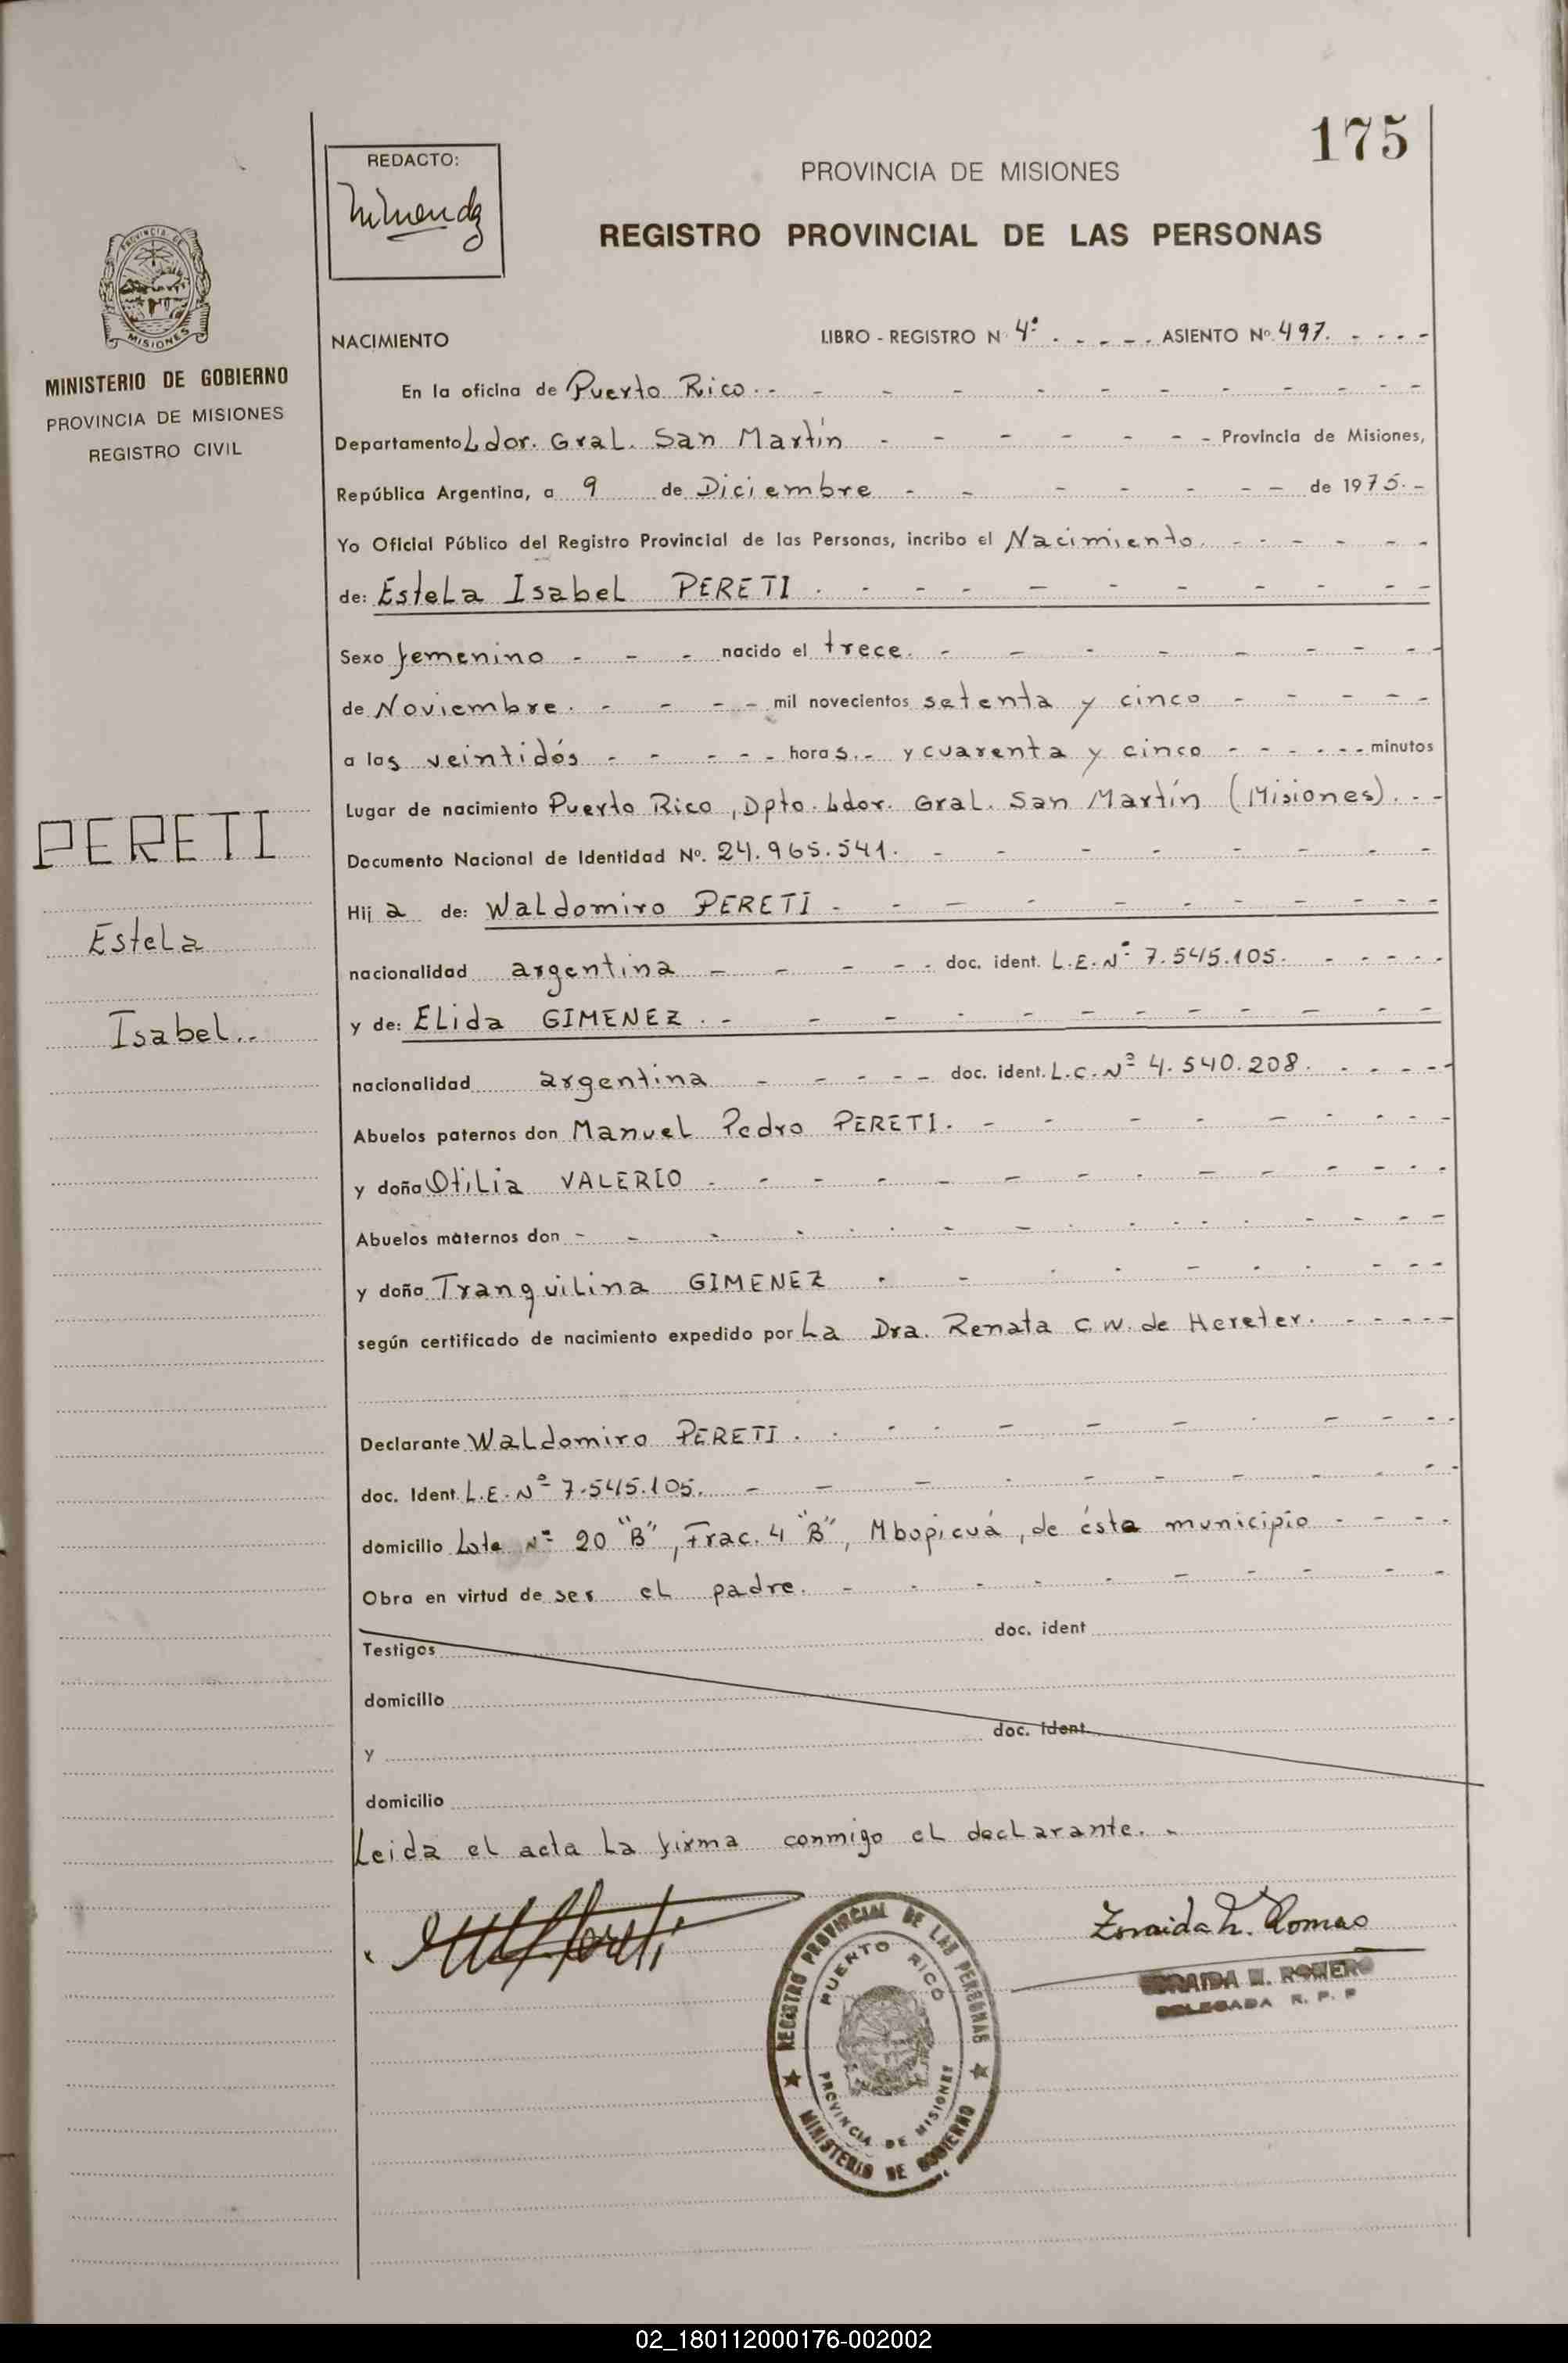 175
REDACTO:
PROVINCIA DE MISIONES
REGISTRO PROVINCIAL DE LAS PERSONAS
PROVINCIA DE
MISIONES
MINISTERIO DE GOBIERNO
PROVINCIA DE MISIONES
REGISTRO CIVIL
NACIMIENTO LIBRO - REGISTRO N 4º - - - - - ASIENTO Nº 497. - - - -
En la oficina de Puerto Rico. - - - - - - - - - -
Departamento Ldor. Gral. San Martín - - - - - - - Provincia de Misiones,
República Argentina, a 9 de Diciembre - - - - - - - de 1975. -
Yo Oficial Público del Registro Provincial de las Personas, incribo el Nacimiento. - - - - - -
de: Estela Isabel PERETI . - - - - - - - - - -
Sexo femenino - - - nacido el trece. - - - - - - - - -
de Noviembre. - - - - mil novecientos setenta y cinco - - - - -
a las veintidós - - - - - horas.- y cuarenta y cinco - - - - - - minutos
Lugar de nacimiento Puerto Rico, Dpto. Ldor. Gral. San Martín (Misiones). - -
Documento Nacional de Identidad Nº. 24.965.541. - - - - - - - -
Hija de: Waldomiro PERETI - - - - - - - - - -
nacionalidad argentina - - - - - doc. ident. L.E. Nº 7.545.105. - - - - -
y de: Elida GIMENEZ . - - - - - - - - - - -
nacionalidad argentina - - - - - - doc. ident. L.C. Nº 4.540.208. - - - - -
Abuelos paternos don Manuel Pedro PERETI. - - - - - - - - -
y doña Otilia VALERIO - - - - - - - - - - - -
Abuelos maternos don - - - - - - - - - - - - - -
y doña Tranquilina GIMENEZ - - - - - - - - - -
según certificado de nacimiento expedido por La Dra. Renata C.W. de Hereter. - - - - -
Declarante Waldomiro PERETI . - - - - - - - - - -
doc. Ident. L.E. Nº 7.545.105. - - - - - - - - - -
domicilio Lote Nº 20 "B", Frac. 4 "B", Mbopicuá, de ésta municipio - - - -
Obra en virtud de ser el padre. - - - - - - - - - -
Testigos doc. ident
domicilio
y doc. ident
domicilio
Leida el acta la firma conmigo el declarante. -
PERETI
Estela
Isabel..
Zoraida Romero
ZORAIDA M. ROMERO
DELEGADA R. P. P
REGISTRO PROVINCIAL DE LAS PERSONAS
PUERTO RICO
PROVINCIA DE MISIONES
MINISTERIO DE GOBIERNO
02_180112000176-002002